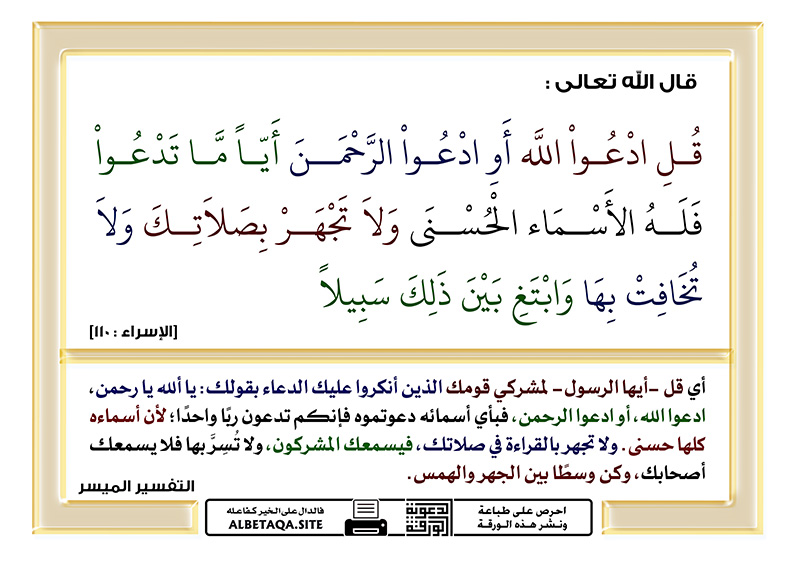 قال الله تعالى :
قُـلِ ادْعُـواْ اللَّه أَوِ ادْعُـواْ الرَّحْمَـنَ أَيّـاً مَّـا تَدْعُـواْ
فَلَـهُ الأَسْـمَاء الْحُسْـنَى وَلاَ تَجْهَـرْ بِصَلاَتِـكَ وَلاَ
تُخَافِتْ بِهَا وَابْتَغِ بَيْنَ ذَلِكَ سَبِيلاً
[الإسراء : ١١٠]
أي قل -أيها الرسول- لمشركي قومك الذين أنكروا عليك الدعاء بقولك: يا ألله يا رحمن،
ادعوا الله، أو ادعوا الرحمن، فبأي أسمائه دعوتموه فإنكم تدعون ربًا واحدًا؛ لأن أسماءه
كلها حسنى. ولا تجهر بالقراءة في صلاتك، فيسمعك المشركون، ولا تُسِرَّ بها فلا يسمعك
أصحابك، وكن وسطًا بين الجهر والهمس.
التفسير الميسر
احرص على طباعة
ونشر هذه الورقة
الدعوية
الورقة
فالدال على الخير كفاعله
ALBETAQA.SITE